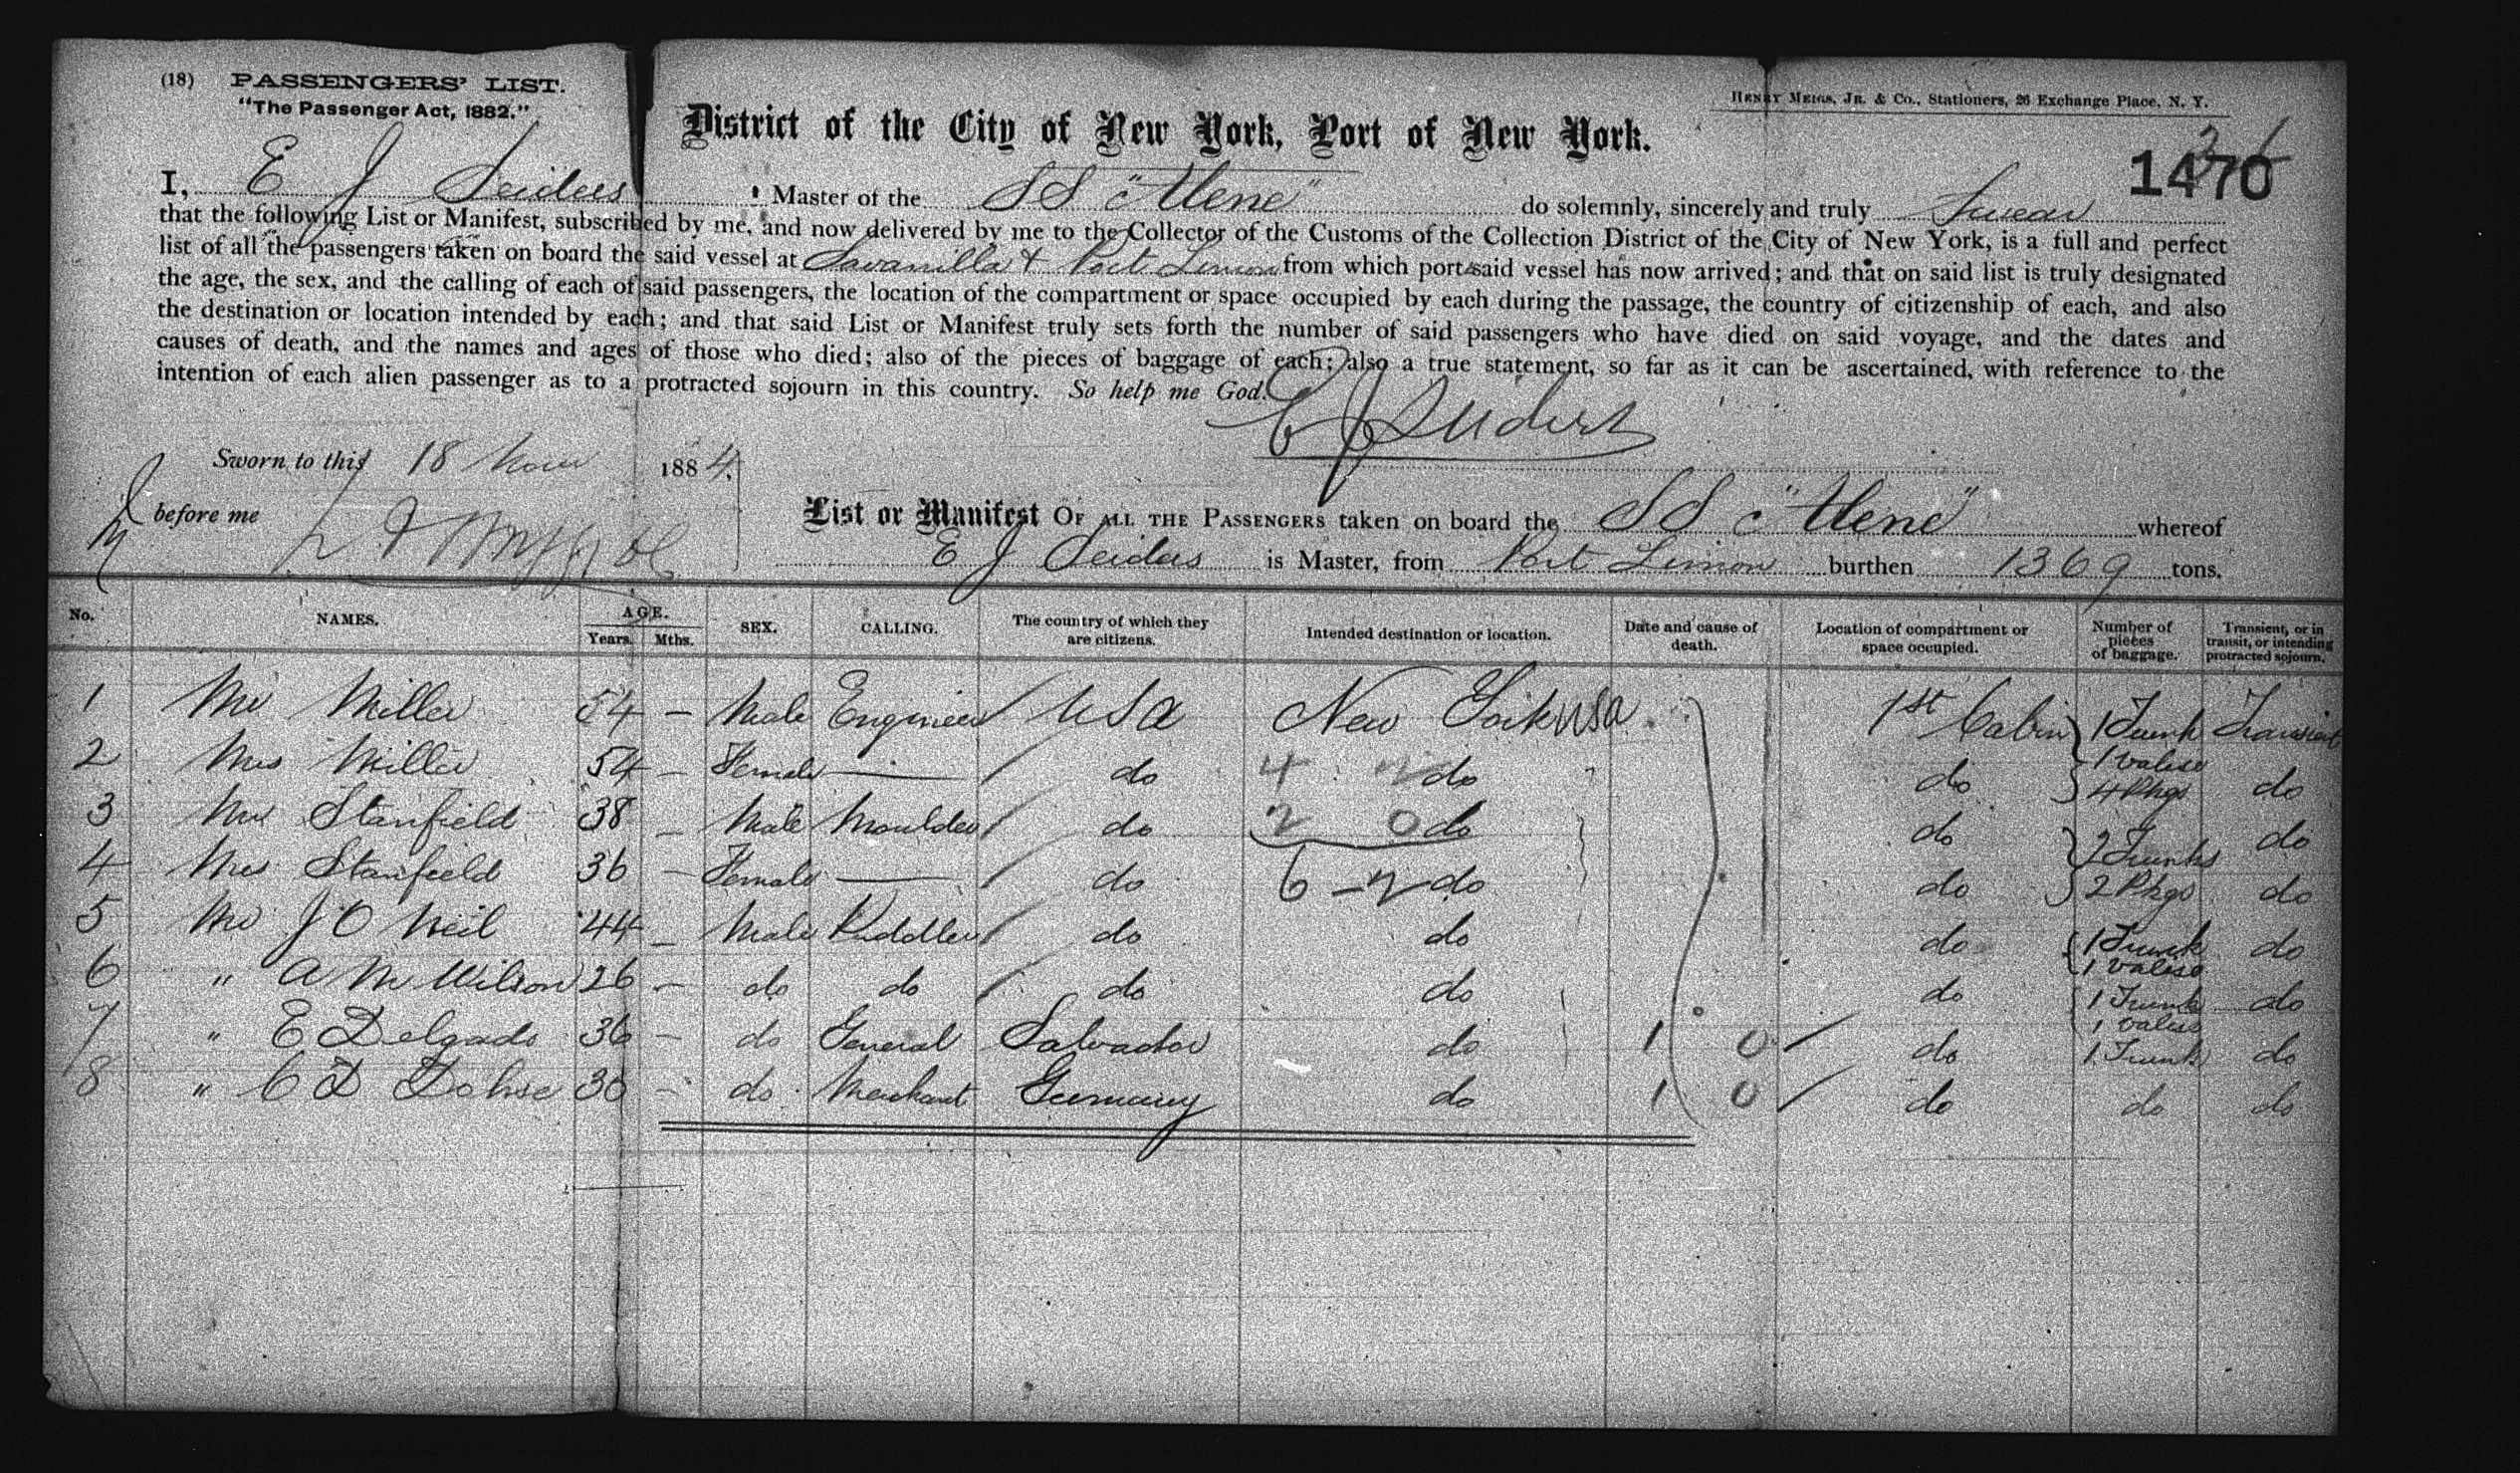 (18) PASSENGERS' LIST.
"The Passenger Act, 1882."
HENRY MEIGS, JR. & Co., Stationers, 26 Exchange Place, N. Y.
District of the City of New York, Port of New York.
1470
I, E J Seiders Master of the SS "Alene" do solemnly, sincerely and truly Swear
that the following List or Manifest, subscribed by me, and now delivered by me to the Collector of the Customs of the Collection District of the City of New York, is a full and perfect
list of all the passengers taken on board the said vessel at Savanilla & Port Limon from which port said vessel has now arrived; and that on said list is truly designated
the age, the sex, and the calling of each of said passengers, the location of the compartment or space occupied by each during the passage, the country of citizenship of each, and also
the destination or location intended by each; and that said List or Manifest truly sets forth the number of said passengers who have died on said voyage, and the dates and
causes of death, and the names and ages of those who died; also of the pieces of baggage of each; also a true statement, so far as it can be ascertained, with reference to the
intention of each alien passenger as to a protracted sojourn in this country. So help me God.
E J Seiders
Sworn to this 18 1884.
before me
List or Manifest OF ALL THE PASSENGERS taken on board the SS "Alene" whereof
E J Seiders is Master, from Port Limon burthen 1369 tons.
No. NAMES. AGE. Years. Mths. SEX. CALLING. The country of which they are citizens. Intended destination or location. Date and cause of death. Location of compartment or space occupied. Number of pieces of baggage. Transient, or in transit, or intending protracted sojourn.
1 Mr Miller 54 – Male Engineer USA New York USA 1st Cabin 1 Trunk Transient
2 Mrs Miller 54 – Female — do do do 1 Valise 4 Pkgs do
3 Mr Stanfield 38 – Male Moulder do do do 2 Trunks do
4 Mrs Stanfield 36 – Female — do do do 2 Pkgs do
5 Mr J O Neil 44 – Male Puddler do do do 1 Trunk 1 Valise do
6 " A Mc Wilson 26 – do do do do do 1 Trunk 1 Valise do
7 " E Delgado 36 – do General Salvador do 1 0 do 1 Trunk do
8 " C D Dohse 30 – do Merchant Germany do 1 0 do do do